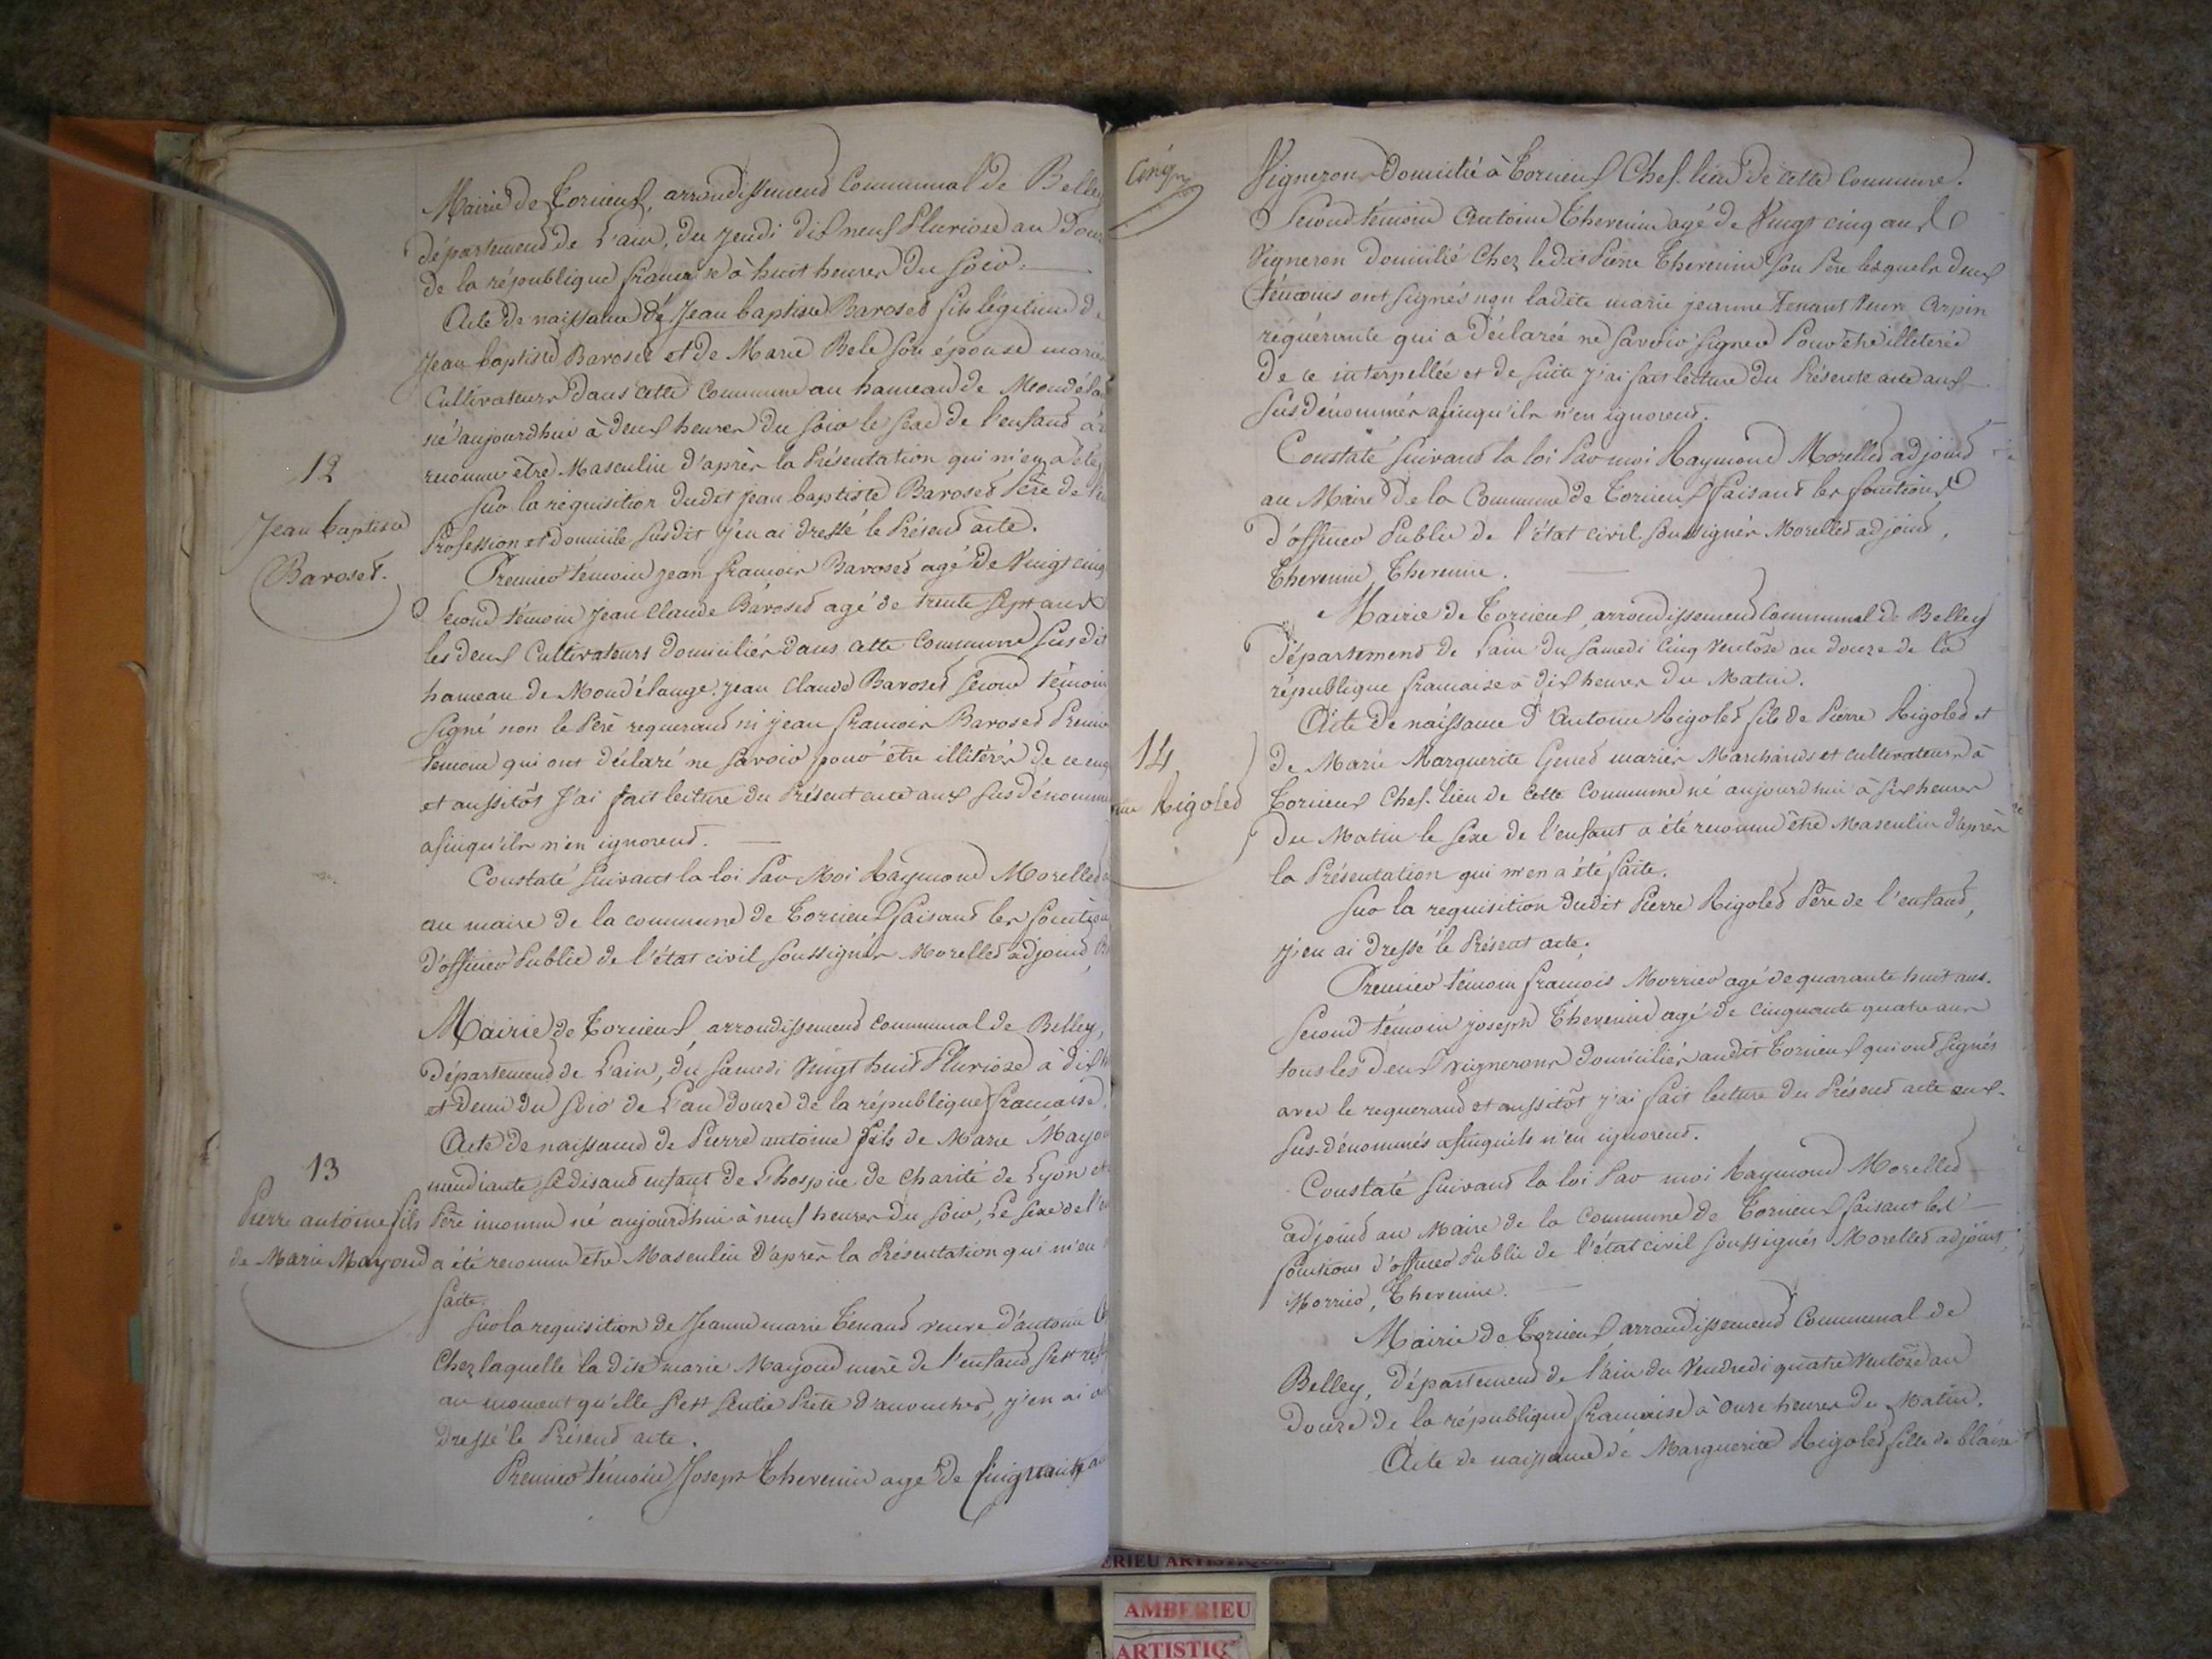 Mairie de Torcieux, arrondissement Communal de Belley
département de L'ain, du jeudi dix neuf Pluviose an Douze
de la république française à huit heures du soir.
Acte de naissance de Jean baptiste Baroset fils légitime de
Jean baptiste Baroset et de Marie Bele son épouse mariés
Cultivateurs dans cette Commune au hameau de Mondélange
né aujourdhui à deux heures du soir le sexe de l'enfant a
reconnu etre Masculin d'après la Présentation qui m'en a été
12
Jean baptiste
Baroset.
Sur la réquisition dudit Jean baptiste Baroset Père de
Profession et domicile susdit j'en ai dressé le Présent acte.
Premier témoin jean francois Baroset agé de Vingt cinq
Second témoin Jean Claude Baroset agé de trente sept ans
les deux Cultivateurs domiciliés dans cette Commune susdit
hameau de Mondélange. Jean Claude Baroset second témoin
signé non le Père requerant ni jean francois Baroset Premier
temoin qui ont déclaré ne savoir pour être illitérés de ce enq
et aussitôt J'ai fait lecture du Présent acte aux susdénommés
afinqu'ils n'en ignorent.
Constaté suivant la loi Par Moi Raymond Morellet
au maire de la commune de Torcieux faisant les fonctions
d'officier Public de l'état civil soussignés Morellet adjoint,
Mairie de Torcieux, arrondissement communal de Belley,
Département de L'ain, du samedi Vingt huit Pluviose à dix
et demi du soir de L'an douze de la république française.
Acte de naissance de Pierre antoine fils de Marie Mayoud
mendiante se disant enfant de L'hospice de Charité de Lyon et
13
Pierre antoine fils
de Marie Mayoud
Père inconnu né aujourdhui à neuf heures du soir, Le sexe de l'
a été reconnu etre Masculin d'après la Présentation qui m'en
faite.
Sur la requisition de Jeanne marie Tenant veuve d'antoine
Chez laquelle la dite marie Mayoud mere de l'enfant s'est
au moment qu'elle s'est sentie Prete d'accoucher, j'en ai
Dressé le Présent acte.
Premier témoin Joseph Thevenin agé de Cinquante
Cinq
Vigneron Domicilié à Torcieux Chef-lieu de cette Commune.
Second témoin Antoine Thevenin agé de Vingt cinq ans
Vigneron domicilié Chez ledit Pierre Thevenin son Pere lesquels deux
témoins ont signés non ladite marie jeanne Tenant Veuve Carpin
réquérante qui a déclarée ne savoir signer Pour etre illiterée
De ce interpellée et de suite j'ai fait lecture du Présent acte aux
susdénommés afinqu'ils n'en ignorent.
Constaté suivant la loi Par moi Raymond Morellet adjoint
au Maire de la Commune de Torcieux faisant les fonctions
d'officier Public de l'état civil soussignés Morellet adjoint,
Thevenin, Thevenin.
Mairie de Torcieux, arrondissement Communal de Belley
Département de L'ain du samedi Cinq Ventose an douze de la
république francaise à dix heures du Matin.
Acte de naissance d'Antoine Rigolet fils de Pierre Rigolet et
14
Rigolet
de Marie Marguerite Genet mariés Marchands et cultivateurs à
Torcieux Chef-lieu de Cette Commune né aujourdhui à six heures
du Matin le sexe de l'enfant a été reconnu être Masculin d'après
la Présentation qui m'en a été faite.
Sur la requisition dudit Pierre Rigolet Père de l'enfant,
j'en ai dressé le Présent acte.
Premier témoin francois Morrier agé de quarante huit ans.
Second témoin joseph Thevenin agé de cinquante quatre ans
tous les deux vignerons domiciliés audit Torcieux qui ont signés
avec le requerant et aussitôt j'ai fait lecture du Présent acte aux-
sus-dénommés afinqu'ils n'en ignorent.
Constaté suivant la loi Par moi Raymond Morellet
adjoint au Maire de la Commune de Torcieux faisant les
fonctions d'officier Public de l'état civil soussignés Morellet adjoint,
Morrier, Thevenin.
Mairie de Torcieux arrondissement Communal de
Belley, Département de l'ain du Vendredi quatre Ventose an
Douze de la république francaise à onze heures du Matin.
Acte de naissance de Marguerite Rigolet fille de blaise
AMBERIEU ARTISTIQUE
AMBERIEU
ARTISTIQ